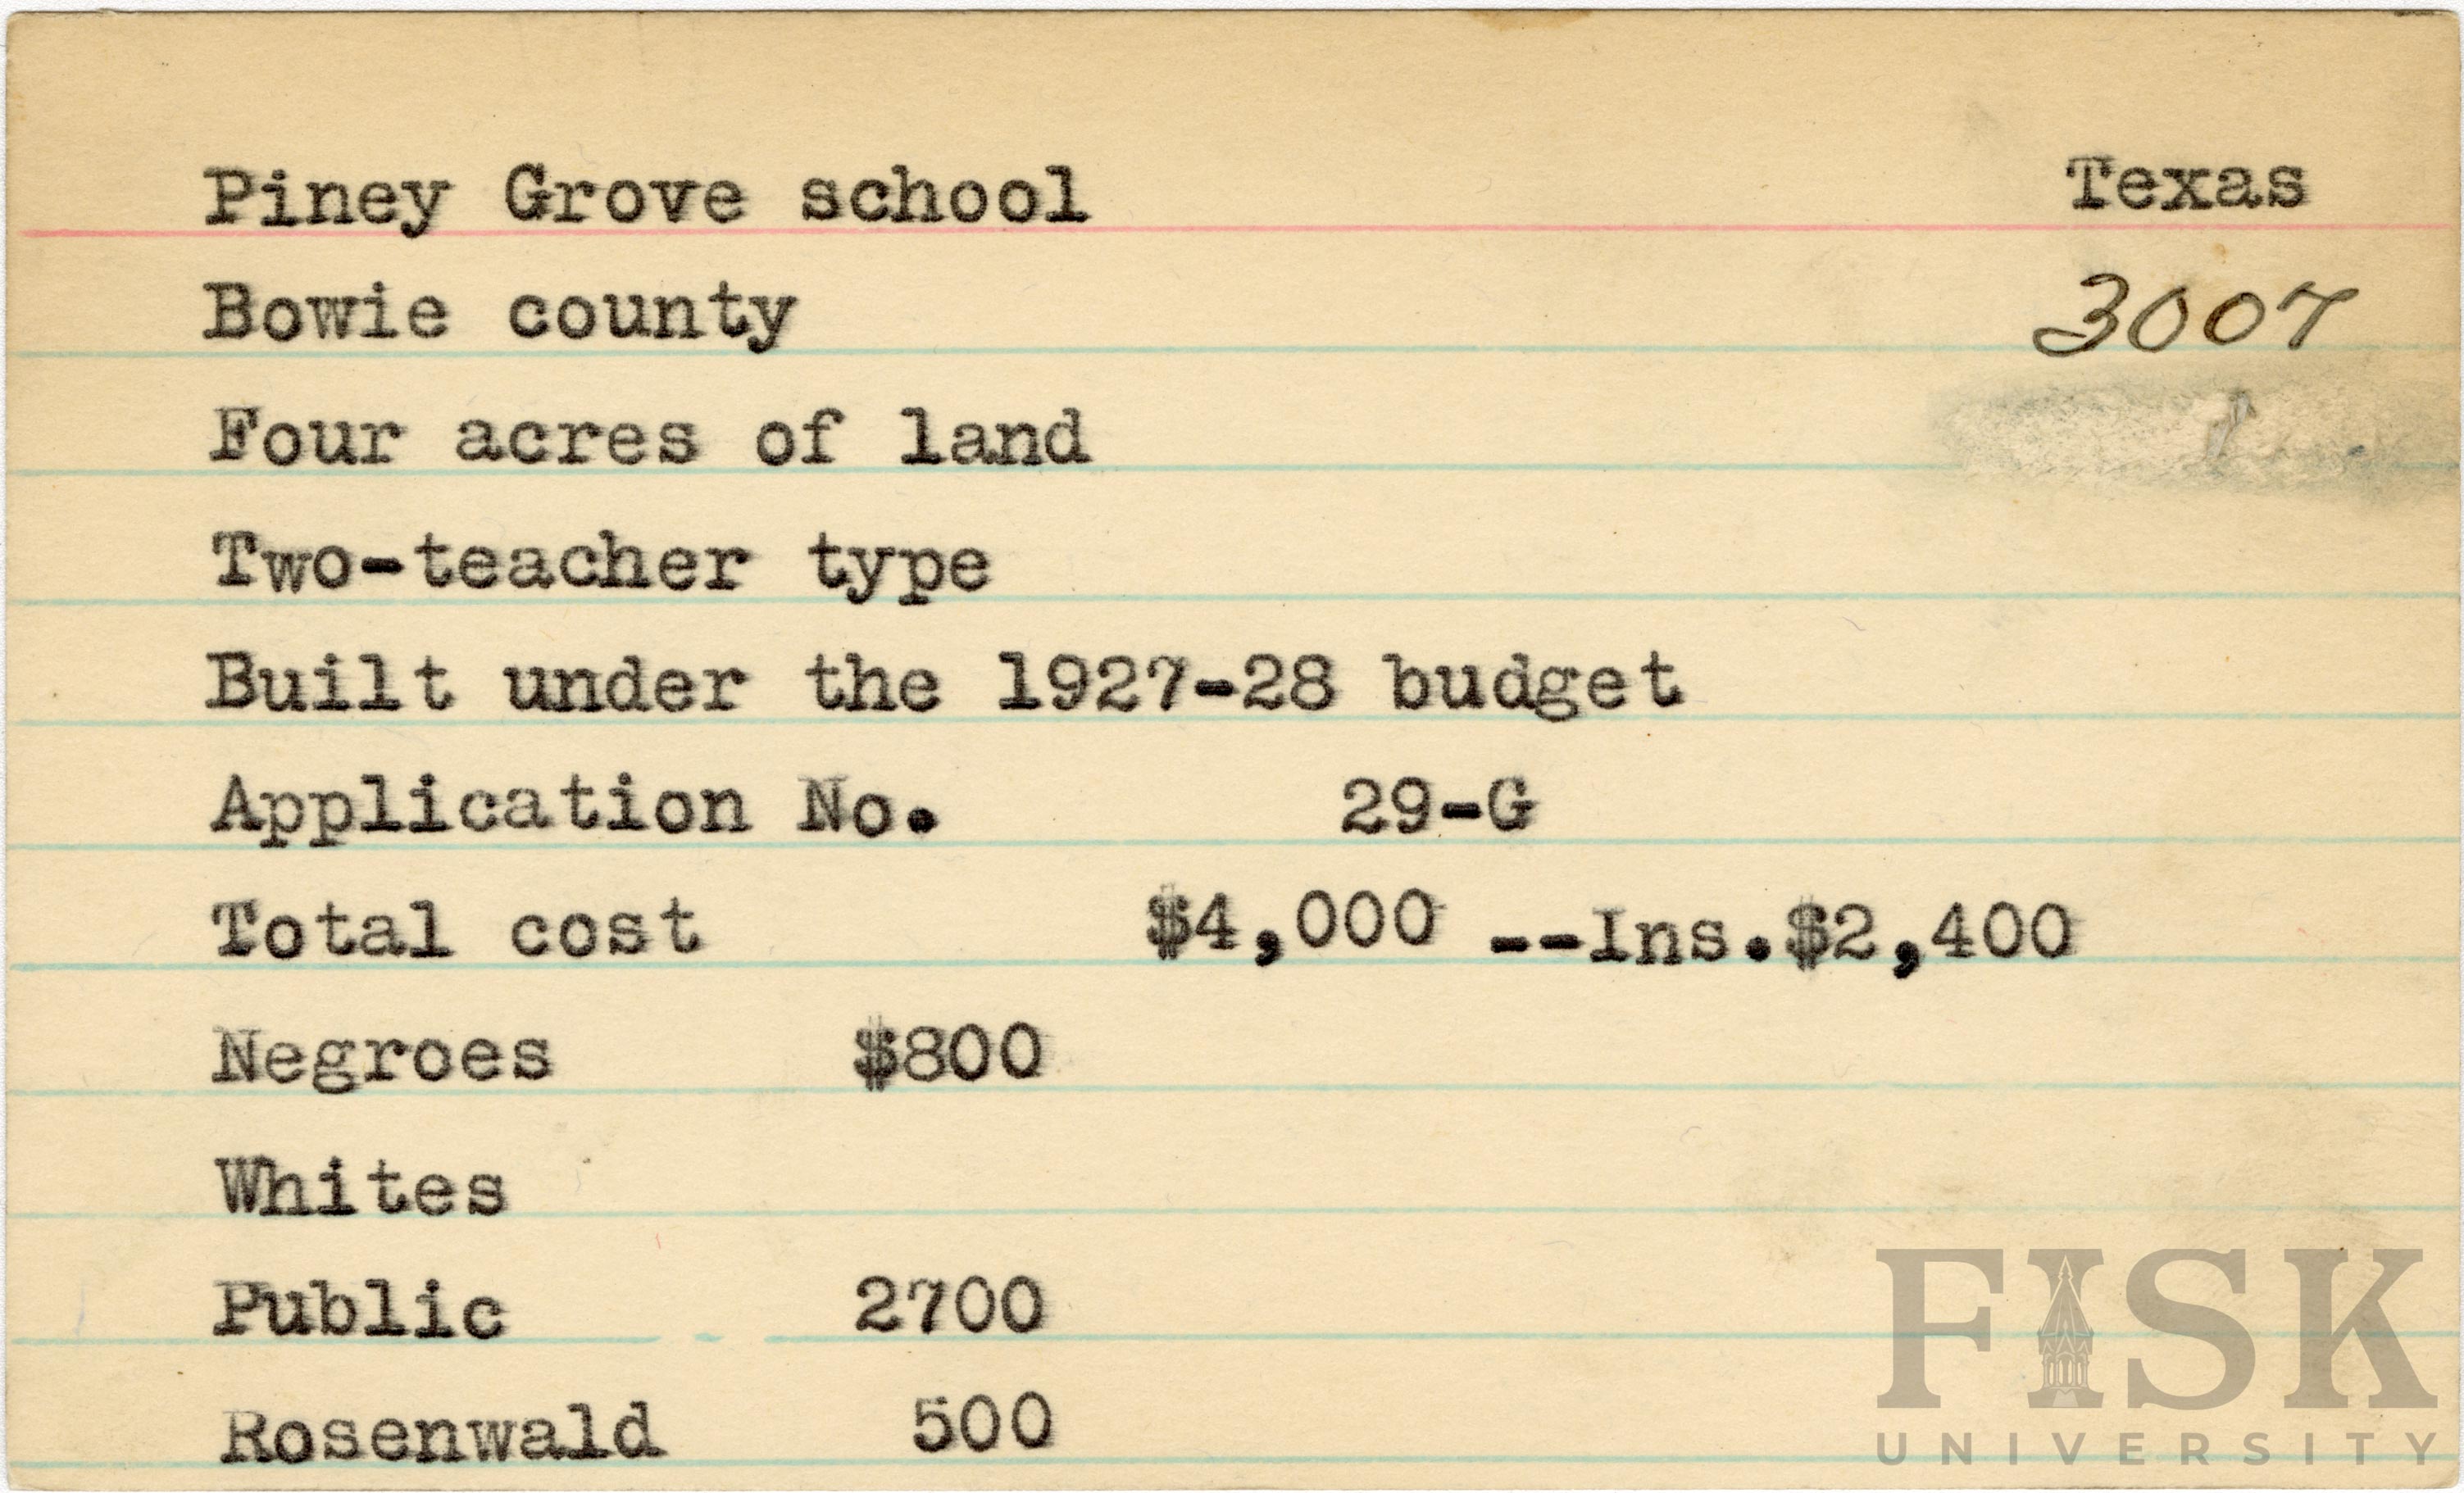 Piney Grove school Texas
Bowie county 3007
Four acres of land
Two-teacher type
Built under the 1927-28 budget
Application No. 29-G
Total cost $4,000 --Ins.$2,400
Negroes $800
Whites
Public 2700
Rosenwald 500
FISK
UNIVERSITY